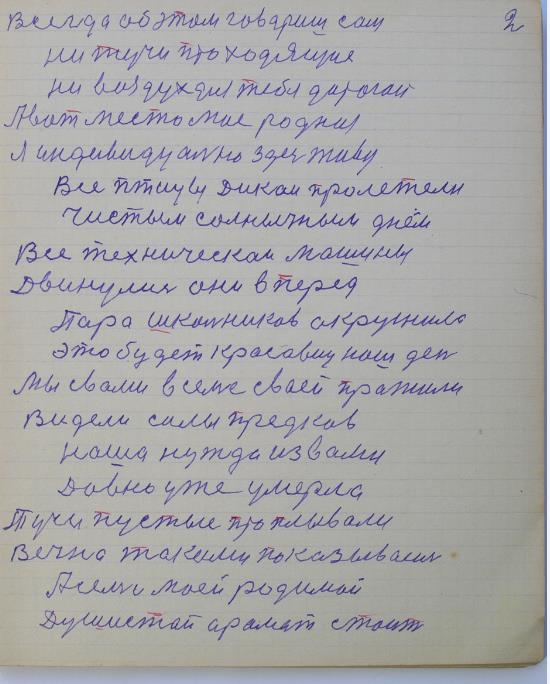 2
Всегда об этом говариш сам
Ни тучи проходящие
Ни воздух для тебя дорогой
А вот место мое родная
Я индивидуально здесь живу
Все птицы Дикаи пролетели
Чистым солнычным днём
Все техническаи машины
Двинулись они в перед
Пара школников окружило
Это будет красавиц наш ден
Мы свами в селе своей пражили
Видели силы предков
Наша нужда из вами
Давно уже умерла
Тучи пустые проплывали
Вечно такими показывались
А селе моей родимой
Душистай аромат стоит